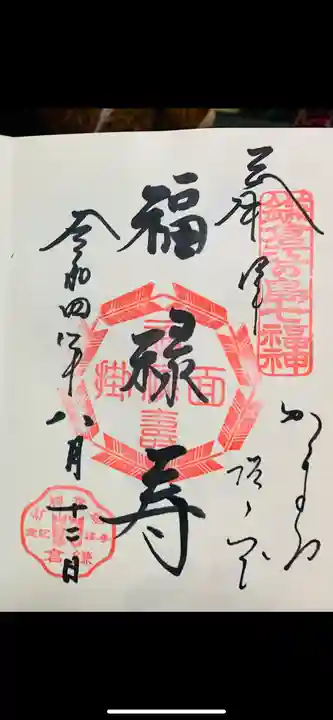 奉拝
かまくら
坂ノ下
鎌倉江の島七福神
福禄寿
面掛
令和四年八月十二日